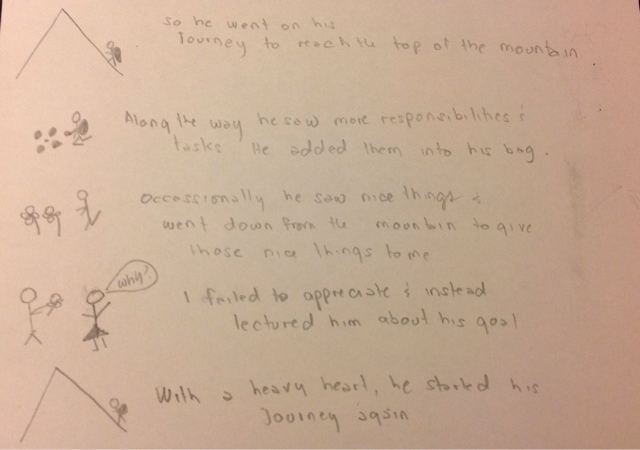 so he went on his
Journey to reach the top of the mountain
Along the way he saw more responsibilities &
tasks. He added them into his bag.
Occassionally he saw nice things &
went down from the mountain to give
those nice things to me
why?
I failed to appreciate & instead
lectured him about his goal
With a heavy heart, he started his
Journey again